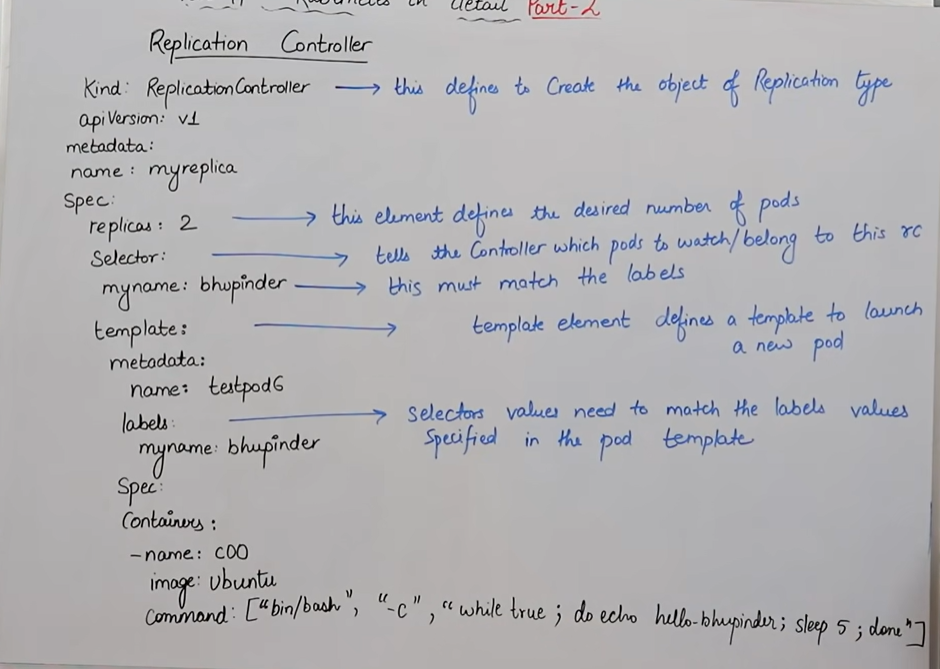 in detail Part-2
Replication Controller
Kind: ReplicationController → this defines to Create the object of Replication type
apiVersion: v1
metadata:
name: myreplica
Spec:
replicas: 2 → this element defines the desired number of pods
Selector: → tells the Controller which pods to watch/belong to this rc
myname: bhupinder → this must match the labels
template: → template element defines a template to launch
a new pod
metadata:
name: testpod6
labels: → Selectors values need to match the labels values
Specified in the pod template
myname: bhupinder
Spec:
Containers:
-name: c00
image: Ubuntu
Command: ["bin/bash", "-c", "while true; do echo hello-bhupinder; sleep 5; done"]